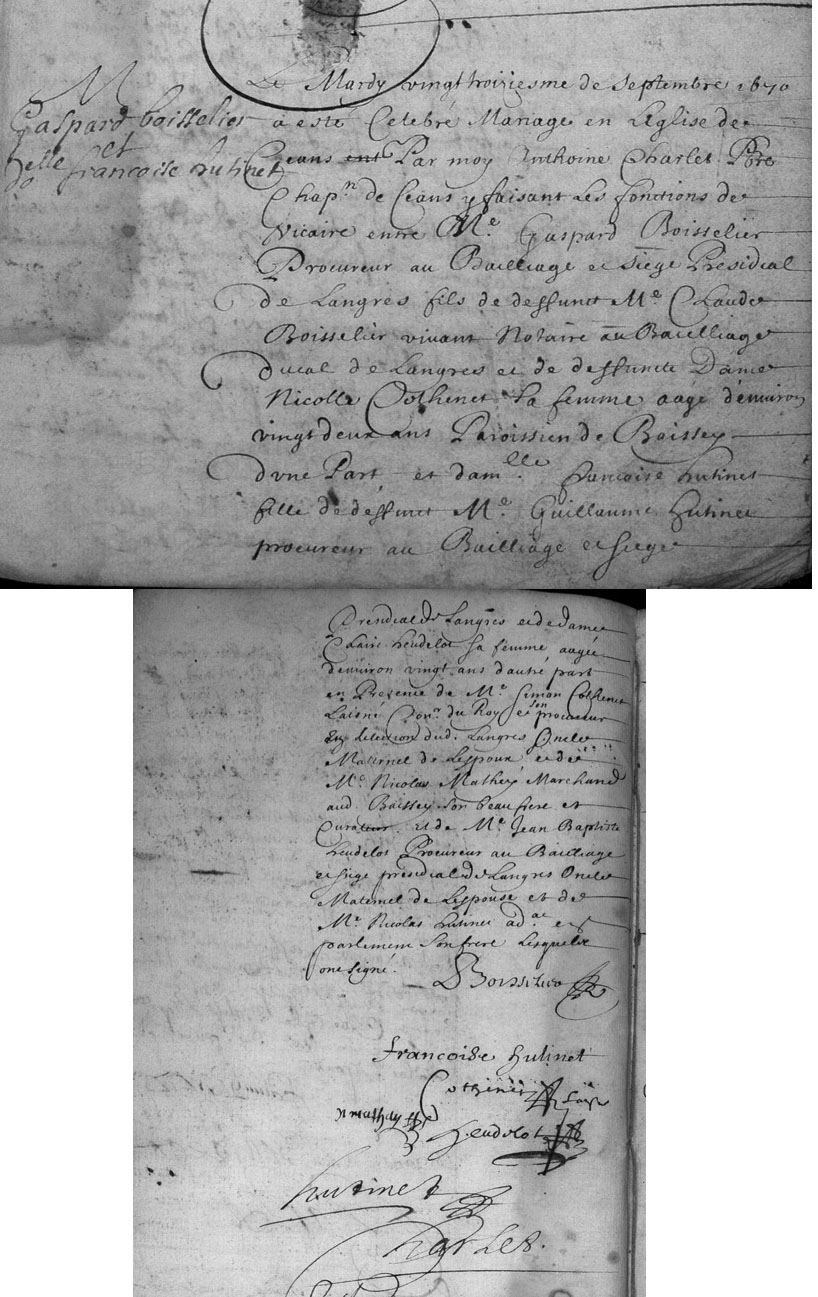 M
Gaspard boisselier
et
delle francoise hutinet
Le Mardy vingt troiziesme de Septembre 1670
a esté Celebré Mariage en Leglise de
Ceans Par moy Anthoine Charlet Pbre
Chapn de Ceans y faisant Les fonctions de
Vicaire entre Me. Gaspard Boisselier
Procureur au Bailliage et siege Presidial
de Langres fils de deffunct Me. Claude
Boisselier vivant Notaire au Bailliage
ducal de Langres et de deffuncte Dame
Nicolle Cothenet sa femme aagé denviron
vingt deux ans Paroissien de Baissey
dvne Part, et damlle. francoise hutinet
fille de deffunct Me. Guillaume hutinet
procureur au Bailliage et siege
Presidial de Langres et de dame
Claire heudelot sa femme aagée
denviron vingt ans dautre part
en Presence de Me. Simon Cothenet
Laisné Conr. du Roy et son procureur
en Lelection dud. Langres Oncle
Maternel de Lespoux, et de
Me. Nicolas Mathey Marchand
aud. Baissey son beaufrere et
Curateur. et de Me. Jean Baptiste
heudelot Procureur au Bailliage
et siege presidial de Langres Oncle
Maternel de Lespouse et de
Me. Nicolas hutinet ad.at en
parlement son frere Lesquels
ont signé.
Boisselier
francoise hutinet
Cothenet Laisné
n mathey
heudelot
hutinet
Charlet.